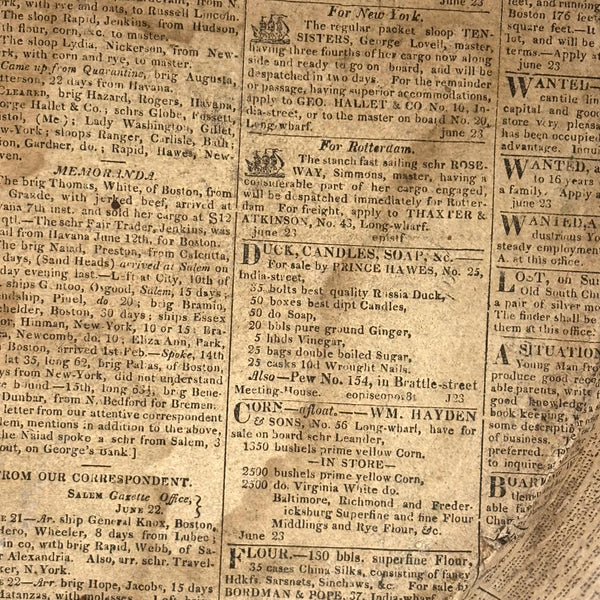 oats, to Russell Lincoln.
The sloop Rapid, Jenkins, from Hudson,
flour, corn, &c. to master.
The sloop Lydia, Nickerson, from New
York, with corn and rye, to master.
Came up from Quarantine, brig Augusta,
Patterson, 22 days from Havana.
CLEARED, brig Hazard, Rogers, Havana,
George Hallet & Co.; schrs Globe, Fossett,
Bristol, (Me.); Lady Washington, Gillet,
New-York; sloops Ranger, Carlisle, Bath
Gardner, do.; Rapid, Hawes, New-
MEMORANDA.
The brig Thomas, White, of Boston, from
Grande, with jerked beef, arrived at
Havana 7th inst. and sold her cargo at $12
qtl.—The schr Fair Trader, Jenkins, was
sail from Havana June 12th, for Boston.
The brig Naiad, Preston, from Calcutta,
days, (Sand Heads) arrived at Salem on
day evening last.—Left at City, 10th of
ships Gentoo, Osgood, Salem, 15 days;
Friendship, Pinel, do. 20; brig Bramin,
Boston, 30 days; ships Essex
Hinman, New-York, 10 or 15; Bra-
Newcomb, do. 10; Eliza Ann, Park,
Boston, arrived 1st Feb.—Spoke, 14th
lat 35, long 62, brig Pallas, of Boston,
days from New-York, did not understand
bound—15th, long 65½, brig Bene-
Dunbar, from N. Bedford for Bremen.
letter from our attentive correspondent
Salem, mentions in addition to the above,
the Naiad spoke a schr from Salem, 3
out, on George's Bank]
FROM OUR CORRESPONDENT.
Salem Gazette Office,
JUNE 22.
21—Ar. ship General Knox, Boston,
Hero, Wheeler, 8 days from Lubec;
in co, with brig Rapid, Webb, of Sa-
Alexandria. Also, arr. schr. Travel-
N.York.
22—Arr. brig Hope, Jacobs, 15 days
Matanzas, with molasses
June 23
For New York.
The regular packet sloop TEN-
SISTERS, George Lovell, master,
having three fourths of her cargo now along
side and ready to go on board, and will be
despatched in two days. For the remainder
or passage, having superior accommodations,
apply to GEO. HALLET & CO No. 10, In-
dia-street, or to the master on board No. 20,
Long-wharf. june 23
For Rotterdam.
The stanch fast sailing schr ROSE-
WAY, Simmons, master, having a
considerable part of her cargo engaged,
will be despatched immediately for Rotter-
dam. For freight, apply to THAXTER &
ATKINSON, No. 43, Long-wharf.
june 23 epistf
DUCK, CANDLES, SOAP, &c.—
For sale by PRINCE HAWES, No. 25,
India-street,
35 bolts best quality Russia Duck,
50 boxes best dipt Candles,
50 do Soap,
20 bbls pure ground Ginger,
5 hhds Vinegar,
25 bags double boiled Sugar,
25 casks 10d Wrought Nails.
Also—Pew No. 154, in Brattle-street
Meeting-House. eopiseopos8t J 23
CORN—afloat.—WM. HAYDEN
& SONS, No. 56 Long-wharf, have for
sale on board schr Leander,
1350 bushels prime yellow Corn,
—IN STORE—
2500 bushels prime yellow Corn,
2500 do. Virginia White do.
Baltimore, Richmond and Freder-
icksburg Superfine and fine Flour
Middlings and Rye Flour, &c.
June 23
FLOUR.—150 bbls. superfine Flour,
35 cases China Silks, consisting of fancy
Hdkfs. Sarsnets, Sinchaws, &c. For sale by
BORDMAN & POPE, 37, India wharf
feet, and running
Boston 176 feet
square feet.—It
lot, and will be
terms.—Apply
june 23
WANTED—
cantile lin
capital and good
store very pleasa
has been occupied
advantage. Inquire
WANTED, a
to 16 years
a family. Apply a
june 23
WANTED, A
dustrious Yo
steady employment
A. at this office.
LOST, on Sun
Old South Chu
a pair of silver mo
The finder shall be
them at this office.
A SITUATION
Young Man fr
produce good reco
able parents, write
good knowledg
book keeping, w
some descriptio
of business,
preferred.
to inquire a
BOARD